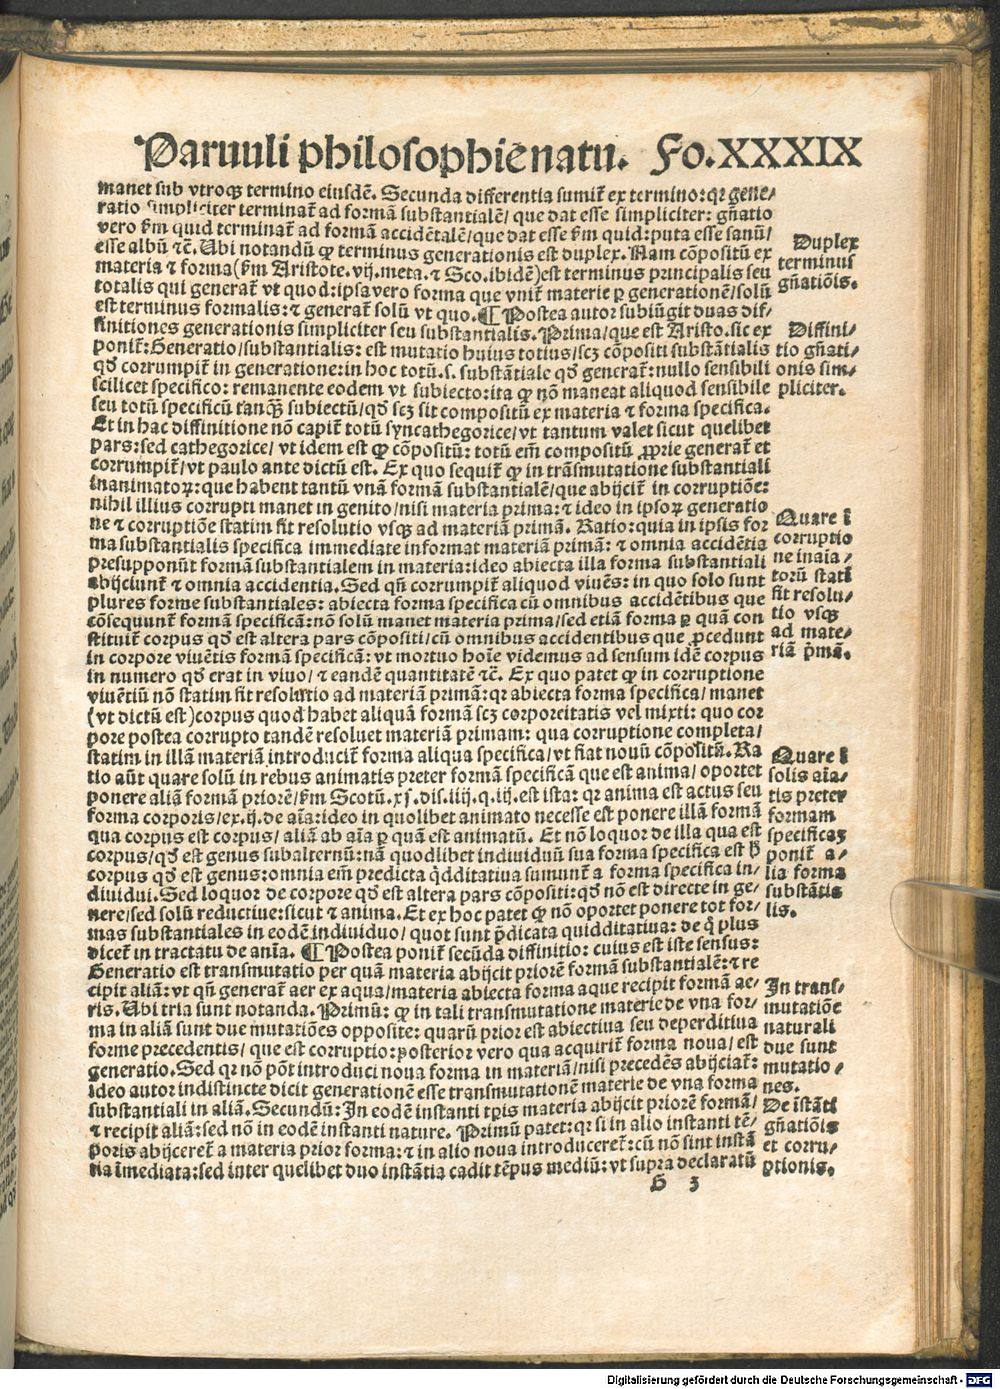 Paruuli philosophie natu. Fo. XXXIX
manet sub vtroqꝫ termino eiusdē. Secunda differentia sumit̄ ex termino: qꝛ gene⸗
ratio simpliciter terminat̄ ad formā substantialē/ que dat esse simpliciter: gn̄atio
vero ẜm quid terminat̄ ad formā accidētalē/ que dat esse ẜm quid: puta esse sanū/
esse albū ⁊c̄. Ubi notandū ꝙ terminus generationis est duplex. Nam cōpositū ex
materia ⁊ forma (ẜm Aristote. vij. meta. ⁊ Sco. ibidē) est terminus principalis seu
totalis qui generat̄ vt quod: ipsa vero forma que vnit̄ materie ꝑ generationē/ solū
est terminus formalis: ⁊ generat̄ solū vt quo. ¶ Postea autor subiūgit duas dif⸗
finitiones generationis simpliciter seu substantialis. Prima/ que est Aristo. sic ex
ponit̄: Generatio/ substantialis: est mutatio huius totius/ scꝫ cōpositi substātialis
qd̓ corrumpit̄ in generatione: in hoc totū. s. substātiale qd̓ generat̄: nullo sensibili
scilicet specifico: remanente eodem vt subiecto: ita ꝙ nō maneat aliquod sensibile
seu totū specificū tanqꝫ subiectū/ qd̓ scꝫ sit compositū ex materia ⁊ forma specifica.
Et in hac diffinitione nō capit̄ totū syncathegorice/ vt tantum valet sicut quelibet
pars: sed cathegorice/ vt idem est ꝙ cōpositū: totū em̄ compositū ꝓprie generat̄ et
corrumpit̄/ vt paulo ante dictū est. Ex quo sequit̄ ꝙ in trāsmutatione substantiali
inanimatoꝝ: que habent tantū vnā formā substantialē/ que abijcit̄ in corruptiōe:
nihil illius corrupti manet in genito/ nisi materia prima: ⁊ ideo in ipsoꝝ generatio
ne ⁊ corruptiōe statim fit resolutio vsqꝫ ad materiā primā. Ratio: quia in ipsis for
ma substantialis specifica immediate informat materiā primā: ⁊ omnia accidētia
presupponūt formā substantialem in materia: ideo abiecta illa forma substantiali
abijciunt̄ ⁊ omnia accidentia. Sed qn̄ corrumpit̄ aliquod viuēs: in quo solo sunt
plures forme substantiales: abiecta forma specifica cū omnibus accidētibus que
cōsequunt̄ formā specificā: nō solū manet materia prima/ sed etiā forma ꝑ quā con
stituit̄ corpus qd̓ est altera pars cōpositi/ cū omnibus accidentibus que ꝓcedunt
in corpore viuētis formā specificā: vt mortuo hoīe videmus ad sensum idē corpus
in numero qd̓ erat in viuo/ ⁊ eandē quantitatē ⁊c̄. Ex quo patet ꝙ in corruptione
viuētiū nō statim fit resolutio ad materiā primā: qꝛ abiecta forma specifica/ manet
(vt dictū est) corpus quod habet aliquā formā scꝫ corporeitatis vel mixti: quo cor
pore postea corrupto tandē resoluet materiā primam: qua corruptione completa/
statim in illā materiā introducit̄ forma aliqua specifica/ vt fiat nouū cōpositū. Ra
tio aūt quare solū in rebus animatis preter formā specificā que est anima/ oportet
ponere aliā formā priorē/ ẜm Scotū. xj. dis. iiij. q. iij. est ista: qꝛ anima est actus seu
forma corporis/ ex. ij. de aīa: ideo in quolibet animato necesse est ponere illā formā
qua corpus est corpus/ aliā ab aīa ꝑ quā est animatū. Et nō loquor de illa qua est
corpus/ qd̓ est genus subalternū: nā quodlibet indiuiduū sua forma specifica est
corpus qd̓ est genus: omnia em̄ predicta q̄dditatiua sumunt̄ a forma specifica in⸗
diuidui. Sed loquor de corpore qd̓ est altera pars cōpositi: qd̓ nō est directe in ge⸗
nere/ sed solū reductiue: sicut ⁊ anima. Et ex hoc patet ꝙ nō oportet ponere tot for⸗
mas substantiales in eodē indiuiduo/ quot sunt p̄dicata quidditatiua: de q̄ plus
dicet̄ in tractatu de anīa. ¶ Postea ponit̄ secūda diffinitio: cuius est iste sensus:
Generatio est transmutatio per quā materia abijcit priorē formā substantialē: ⁊ re
cipit aliā: vt qn̄ generat̄ aer ex aqua/ materia abiecta forma aque recipit formā ae⸗
ris. Ubi tria sunt notanda. Primū: ꝙ in tali transmutatione materie de vna for⸗
ma in aliā sunt due mutatiōes opposite: quarū prior est abiectiua seu deperditiua
forme precedentis/ que est corruptio: posterior vero qua acquirit̄ forma noua/ est
generatio. Sed qꝛ nō pōt introduci noua forma in materiā/ nisi precedēs abijciat̄:
ideo autor indistincte dicit generationē esse transmutationē materie de vna forma
substantiali in aliā. Secundū: In eodē instanti tp̄is materia abijcit priorē formā/
⁊ recipit aliā: sed nō in eodē instanti nature. Primū patet: qꝛ si in alio instanti tē⸗
poris abijceret̄ a materia prior forma: ⁊ in alio noua introduceret̄: cū nō sint instā
tia īmediata: sed inter quelibet duo instātia cadit tēpus mediū: vt supra declaratū
G 3
Duplex
terminus
gn̄atiōis.
Diffini⸗
tio gn̄ati⸗
onis sim⸗
pliciter.
Quare ī
corruptio
ne inaīa⸗
torū stati
fit resolu⸗
tio vsqꝫ
ad mate⸗
riā p̄mā.
Quare ī
solis aīa⸗
tis preter
formam
specificaꝫ
ponit̄ a⸗
lia forma
substātia
lis.
In trans⸗
mutatiōe
naturali
due sunt
mutatio⸗
nes.
De īstāti
gn̄atiōis
et corru⸗
ptionis.
Digitalisierung gefördert durch die Deutsche Forschungsgemeinschaft - DFG